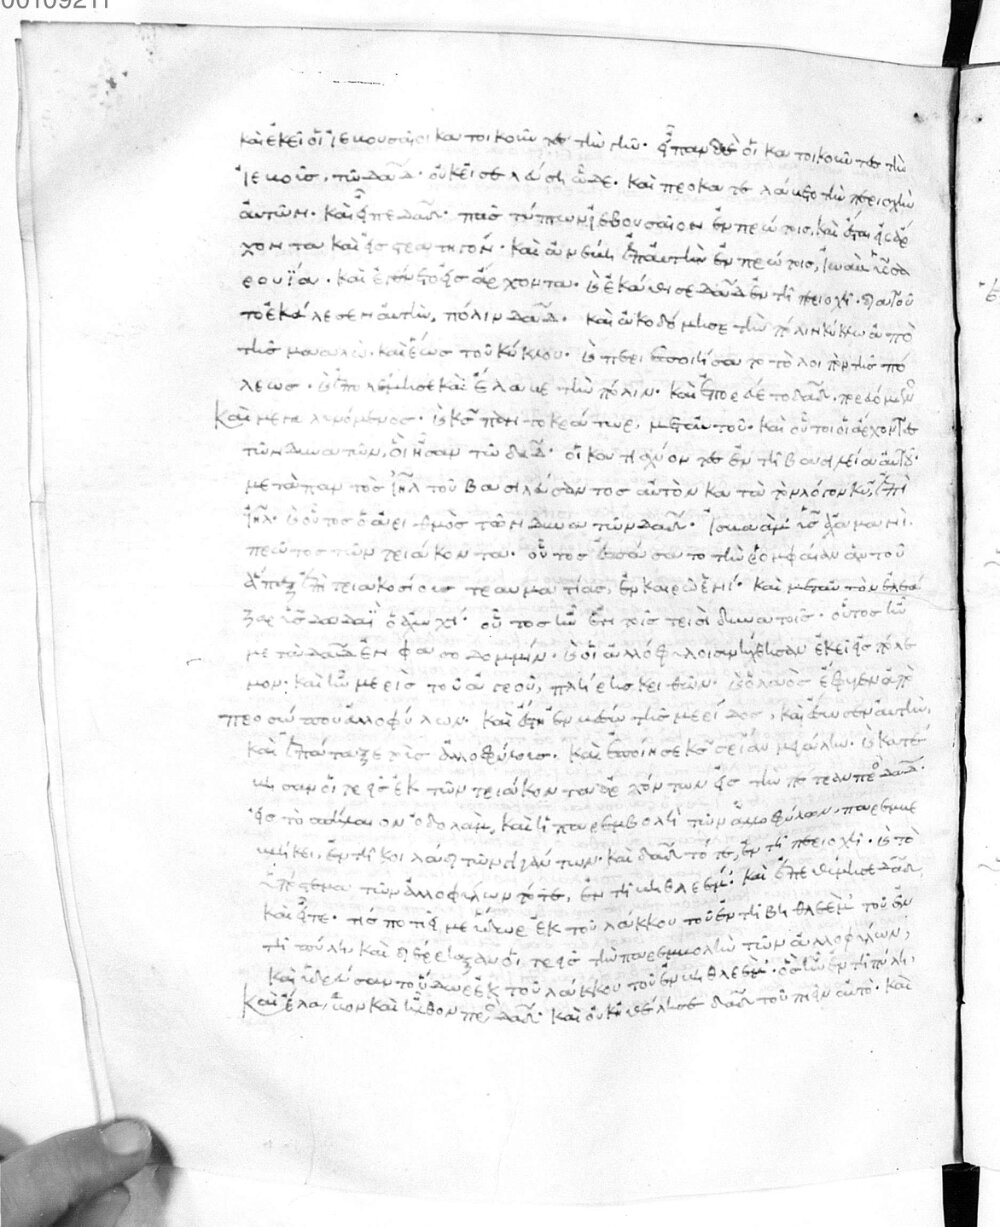 καὶ ἐκεῖ οἱ ἰεβουσαῖοι κατοικοῦντες τὴν γῆν· εἶπαν δὲ οἱ κατοικοῦντες τὴν
ἰεβοῦς, τῶ δαδ· οὐκ εἰσελεύσει ὧδε· καὶ προκατελάβετο τὴν περιοχὴν
αὐτῶν· καὶ εἶπε δαδ· πᾶς τύπτων ἰεβουσαῖον ἐν πρώτοις, καὶ ἔσται εἰς ἄρ
χοντα καὶ εἰς στρατηγόν· καὶ ἀνέβη ἐπ' αὐτὴν ἐν πρώτοις, ἰωαβ υἱὸς σα
ρουΐα· καὶ ἐγένετο εἰς ἄρχοντα· καὶ ἐκάθισε δαδ ἐν τῇ περιοχῇ· διὰ τοῦ
το ἐκάλεσεν αὐτὴν, πόλιν δαδ· καὶ ὠκοδόμησε τὴν πόλιν κύκλω ἀπὸ
τῆς μααλὼ· καὶ ἕως τοῦ κύκλου· καὶ περιεποιήσατο τὸ λοιπὸν τῆς πό
λεως· καὶ ἐπολέμησε καὶ ἔλαβε τὴν πόλιν· καὶ ἐπορεύετο δαδ πορευόμενος
καὶ μεγαλυνόμενος· καὶ κς παντοκράτωρ, μετ' αὐτοῦ· καὶ οὗτοι οἱ ἄρχοντες
τῶν δυνατῶν, οἳ ἦσαν τῶ δαδ· οἱ κατισχύοντες ἐν τῇ βασιλεία αὐτοῦ·
μετὰ παντὸς ιηλ τοῦ βασιλεῦσαι αὐτὸν κατὰ τὸν λόγον κυ, ἐπὶ
ιηλ· καὶ οὗτος ὁ ἀριθμὸς τῶν δυνατῶν δαδ·
πρῶτος τῶν τριάκοντα· οὗτος ἐσπάσατο τὴν ῥομφαίαν αὐτοῦ
ἅπαξ ἐπὶ τριακοσίους τραυματίας, ἐν καιρῶ ἑνί· καὶ μετ' αὐτὸν ἐλεά
ζαρ υἱὸς δωδαῒ ὁ ἀχωχί· οὗτος ἦν ἐν τοῖς τρισὶ δυνατοῖς· οὗτος ἦν
μετὰ δαδ ἐν φασοδομμίν· καὶ οἱ ἀλλόφυλοι συνήχθησαν ἐκεῖ εἰς πόλε
μον· καὶ ἦν μερὶς τοῦ ἀγροῦ, πλήρης κριθῶν· καὶ ὁ λαὸς ἔφυγεν ἀπὸ
προσώπου ἀλλοφύλων· καὶ ἔστη ἐν μέσω τῆς μερίδος, καὶ ἔσωσεν αὐτὴν,
καὶ ἐπάταξε τοὺς ἀλλοφύλους· καὶ ἐποίησε κς σωτηρίαν μεγάλην· καὶ κατέ
βησαν οἱ τρεῖς ἐκ τῶν τριάκοντα ἀρχόντων εἰς τὴν πέτραν πρὸς δαδ·
εἰς τὸ σπήλαιον ὀδολὰμ, καὶ ἡ παρεμβολὴ τῶν ἀλλοφύλων, παρεμβε
βλήκει, ἐν τῇ κοιλάδι τῶν γιγάντων· καὶ δαδ τότε, ἐν τῇ περιοχῇ· καὶ τὸ
ὑπόστεμα τῶν ἀλλοφύλων τότε, ἐν τῇ βηθλεέμ· καὶ ἐπεθύμησε δαδ,
καὶ εἶπε· τίς ποτιεῖ με ὕδωρ ἐκ τοῦ λάκκου τοῦ ἐν τῇ βηθλεέμ τοῦ ἐν
τῇ πύλη; καὶ διέρρηξαν οἱ τρεῖς τὴν παρεμβολὴν τῶν ἀλλοφύλων,
καὶ ὑδρεύσαντο ὕδωρ ἐκ τοῦ λάκκου τοῦ ἐν βηθλεέμ· ὃς ἦν ἐν τῇ πύλη,
καὶ ἔλαβον καὶ ἦλθον πρὸς δαδ· καὶ οὐκ ἠθέλησε δαδ τοῦ πιεῖν αὐτό· καὶ